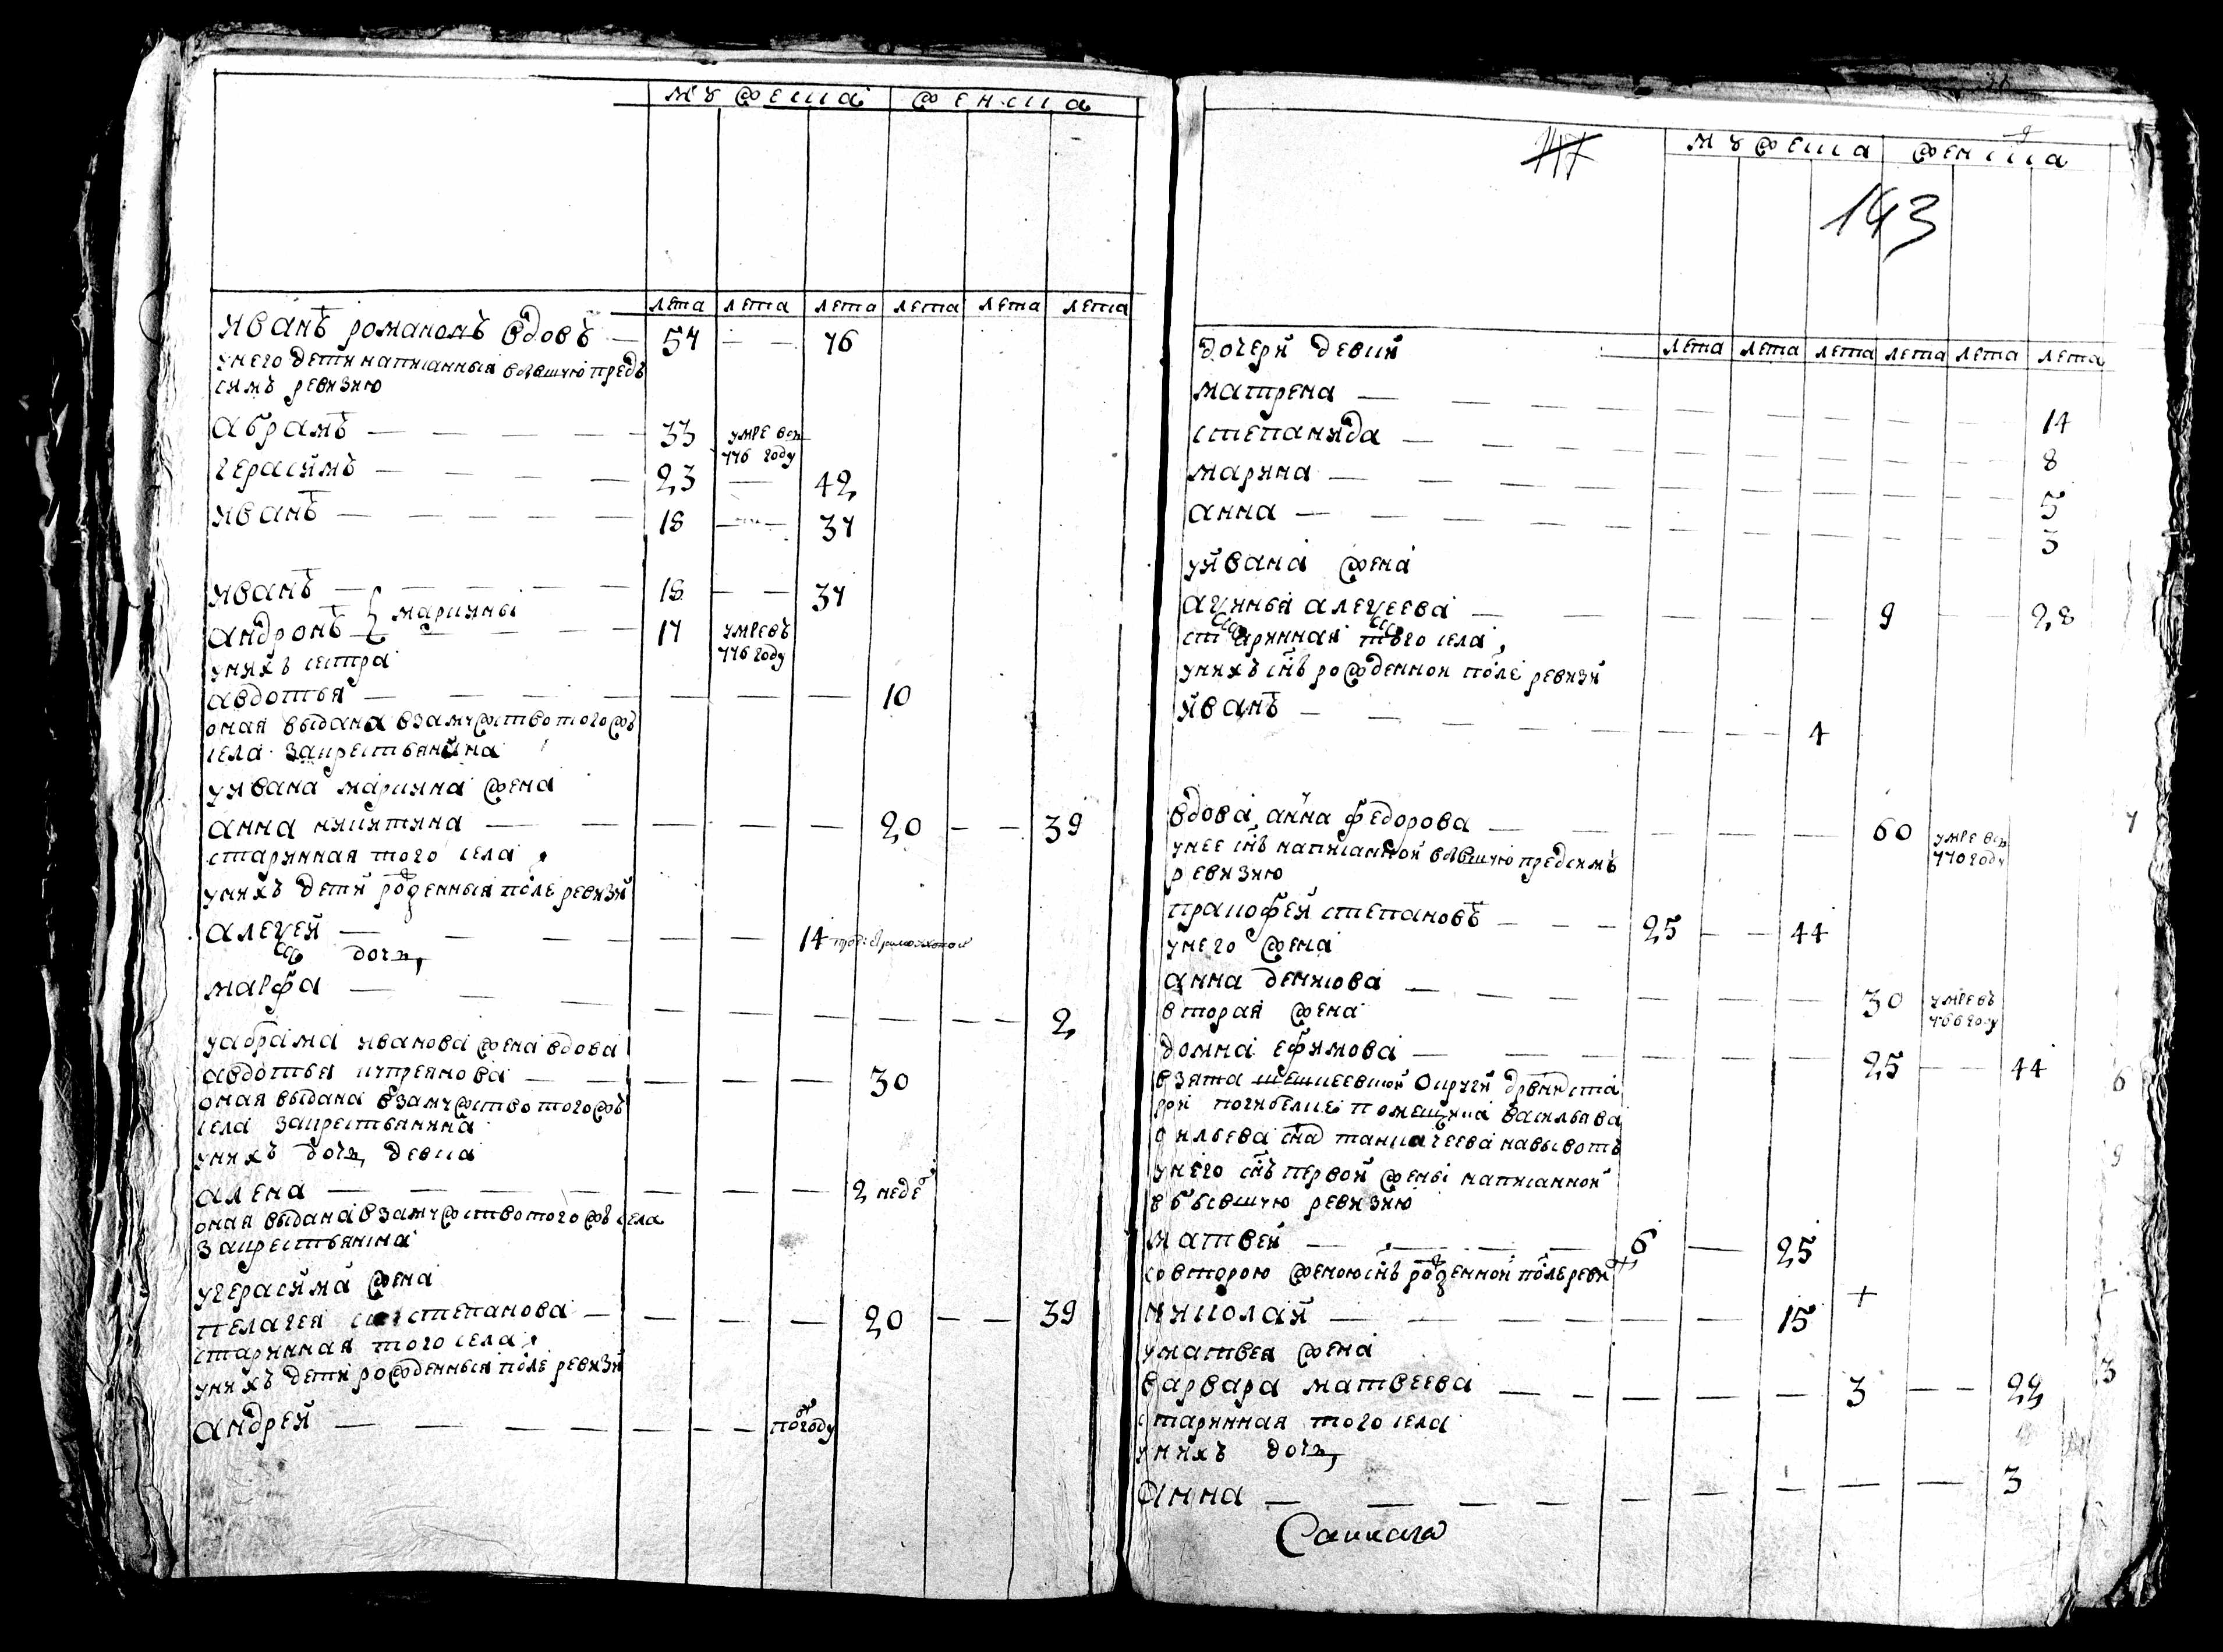 мужеска женска
лета лета лета лета лета лета
иванъ романовъ вдовъ 57 76
унего дети написанныя вбывшую предъ
симъ ревизию
абрамъ 33 умре въ
776 году
герасимъ 23 42
иванъ 18 37
иванъ 18 37
андронъ марцины 17 умре въ
776 году
унихъ сестра
авдотья 10
оная выдана взамужство тогожъ
села закрестьянина
уивана марцина жена
анна никитина 20 39
старинная того села
унихъ дети рожденныя после ревизии
алексей 14
дочь
марфа 2
уабрама иванова жена вдова
авдотья купреянова 30
оная выдана взамужство тогожъ
села закрестьянина
унихъ дочь девка
алена 2 неде
оная выдана взамужство тогожъ села
закрестьянина
угерасима жена
пелагея степанова 20 39
старинная того села
унихъ дети рожденныя после ревизии
андрей погоду
147
143
мужеска женска
лета лета лета лета лета лета
дочери девки
матрена 14
степанида 8
марина 5
анна 3
уивана жена
аксинья алексеева 9 28
старинная того села
унихъ снъ рожденной после ревизи
иванъ 4
вдова анна федорова 60 умре въ
770 году
унее снъ написанной вбывшую предсимъ
ревизию
пракофей степановъ 25 44
унего жена
анна денисова 30 умре въ
766 году
вторая жена
домна ефимова 25 44
взята округи древни ста
рой погибелки помещика василья ва
сильева сна танкачеева навывотъ
унего снъ первой жены написанной
вбывшую ревизию
матвей 6 25
совторою женою снъ рожденной после реви
николай 15
уматвея жена
варвара матвеева 3 22
старинная того села
унихъ дочь
анна 3